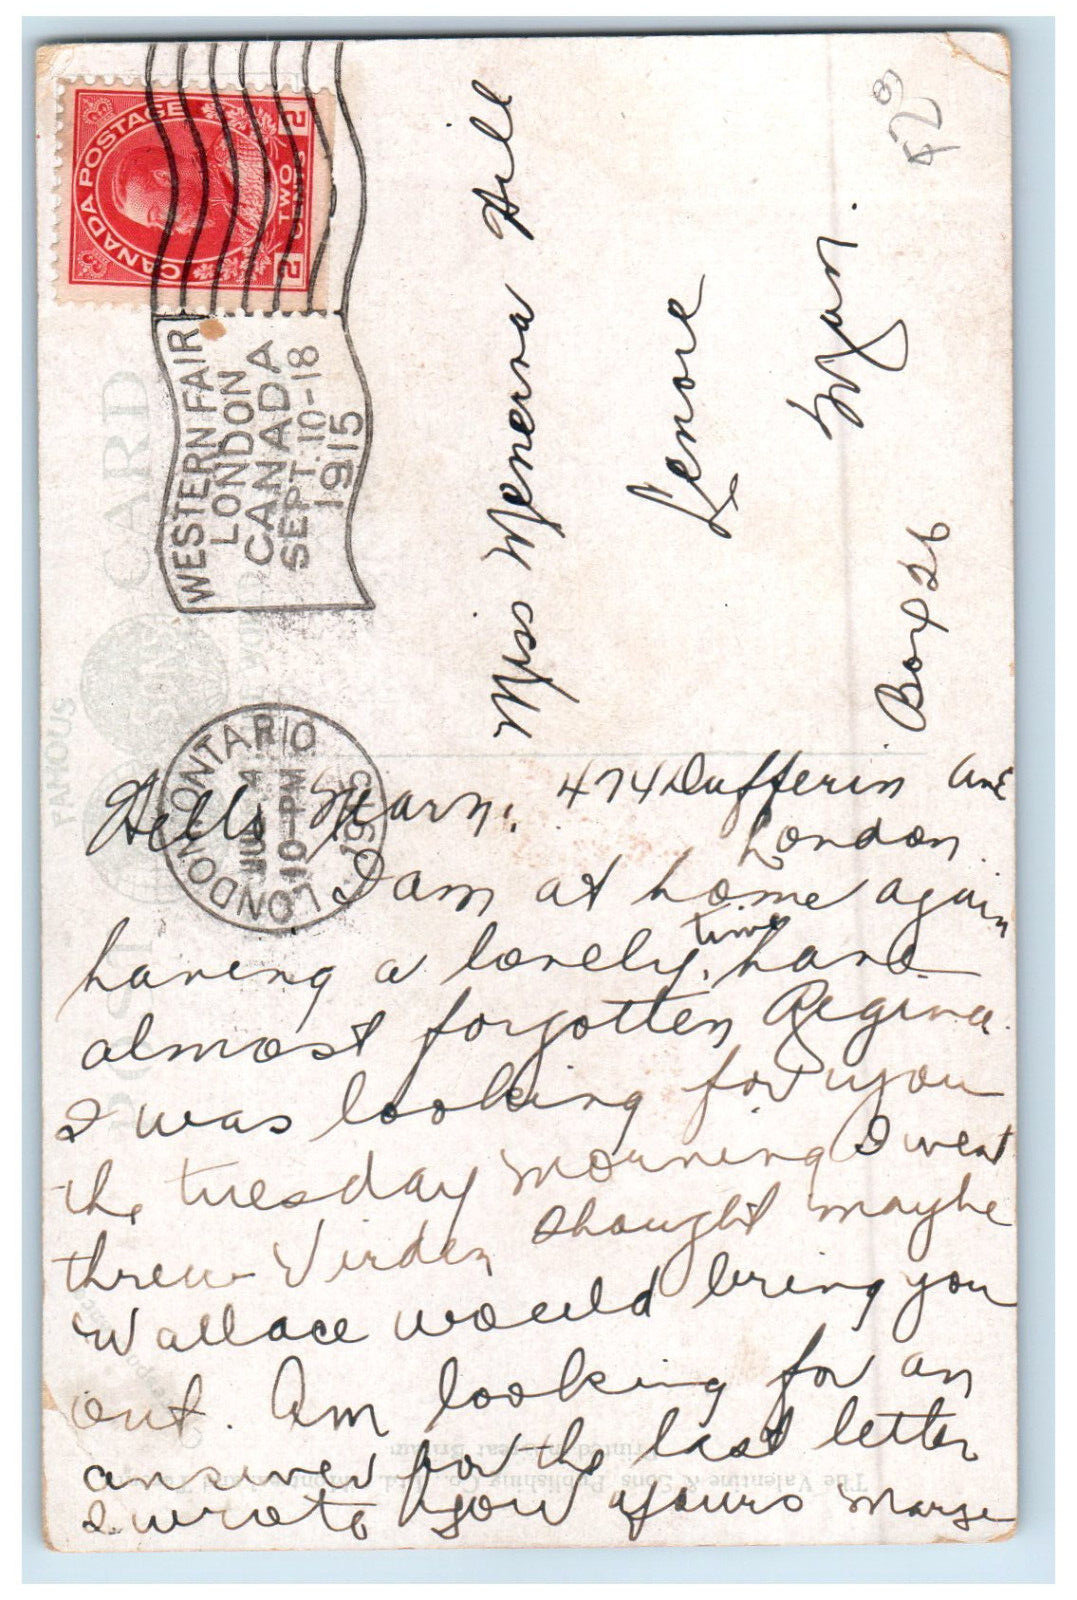 CANADA POSTAGE
2 TWO CENTS 2
WESTERN FAIR
LONDON
CANADA
SEPT. 10-18
1915
LONDON ONTARIO
JUL 4
10-PM
1915
POST CARD
FAMOUS
Miss Menerva Hill
Lenore
Man.
Box 26
Hello Marn. 474 Dufferin Ave
London.
I am at home again
having a lovely time, have
almost forgotten Regina.
I was looking for you
the tuesday morning I went
threw Virden thought maybe
Wallace would bring you
out. Am looking for an
answer for the last letter
I wrote you yours Marge
Printed in Great Britain
The Valentine & Sons Publishing Co., Ltd.